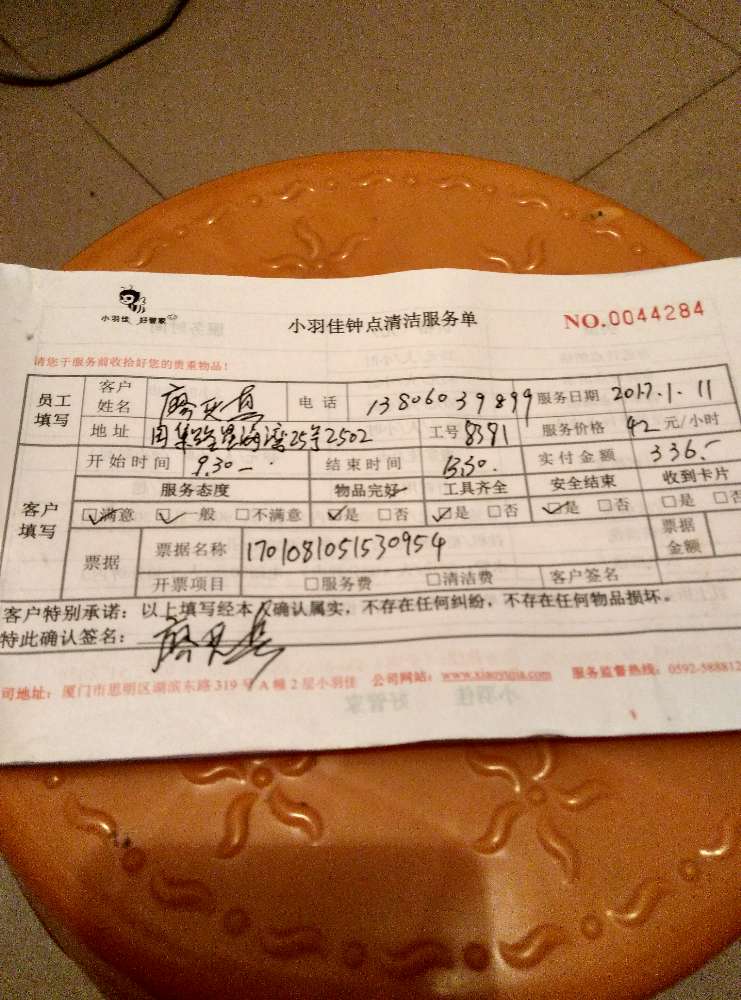 小羽佳 好管家
小羽佳钟点清洁服务单
NO.0044284
请您于服务前收拾好您的贵重物品！
员工填写 客户姓名 廖 电话 13806039899 服务日期 2017.1.11
地址 25号2502 工号 8391 服务价格 42 元/小时
客户填写 开始时间 9.30 结束时间 13.30. 实付金额 336.-
服务态度 物品完好 工具齐全 安全结束 收到卡片
☑满意 ☑一般 □不满意 ☑是 □否 ☑是 □否 ☑是 □否 □是 □否
票据 票据名称 1701081051530954 票据金额
开票项目 □服务费 □清洁费 客户签名
客户特别承诺：以上填写经本人确认属实，不存在任何纠纷，不存在任何物品损坏。
特此确认签名： 廖
司地址：厦门市思明区湖滨东路319号A幢2层小羽佳 公司网站：www.xiaoyujia.com 服务监督热线：0592-588812